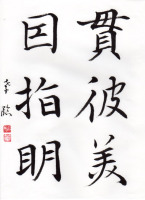 貫彼美
因指明